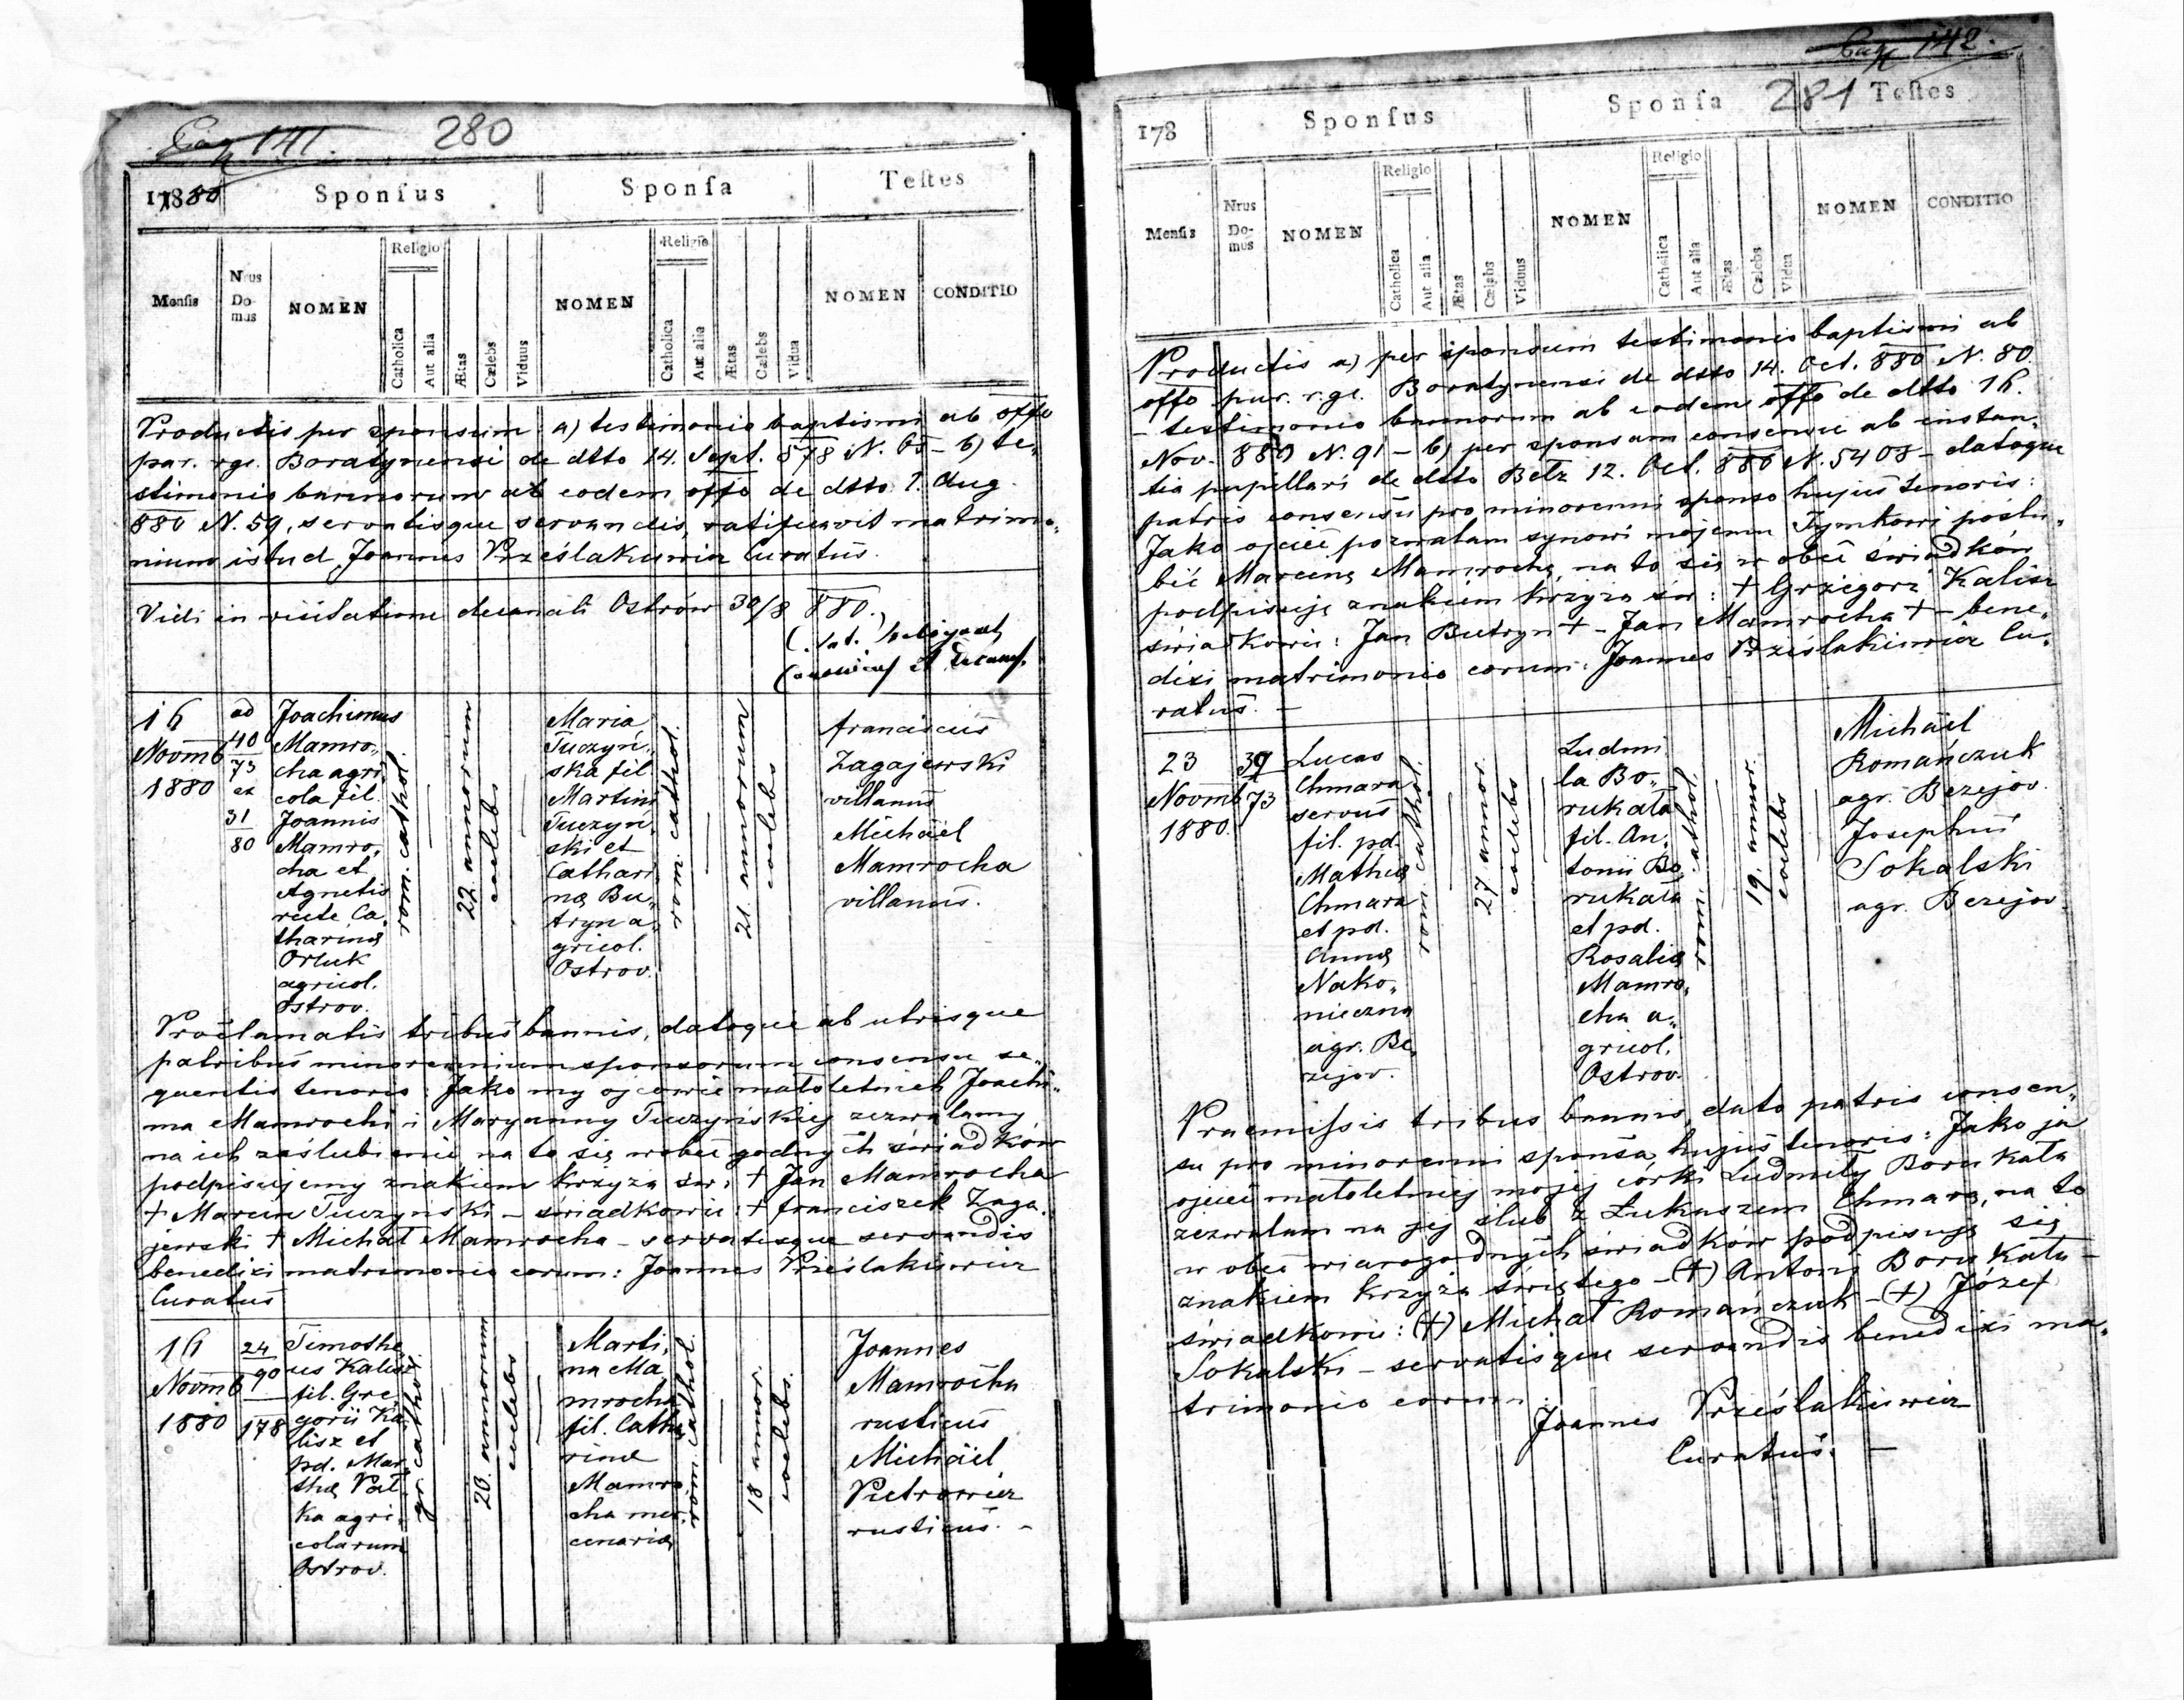 Pag 141.
280
1880
Sponsus
Sponsa
Testes
Mensis
Nrus Domus
NOMEN
Religio
Catholica
Aut alia
Ætas
Cælebs
Viduus
NOMEN
Religio
Catholica
Aut alia
Ætas
Cælebs
Vidua
NOMEN
CONDITIO
Productis per sponsum: a) testimonio baptismi ab offo
par. rgc. Boratynensi de dtto 14. Sept. 878 N. 65 - b) te„
stimonio bannorum ab eodem offo de dtto 1. Aug.
880 N. 59, servatisque servandis, ratificavit matrimo„
nium istud Joannes Prześlakiewicz Curatus.
Vidi in visitatione decanali Ostrów 30/8 880.
Canonicus et Decanus.
16
Novmb
1880
ad
40
73
ex
31
80
Joachimus
Mamro„
cha agri„
cola fil.
Joannis
Mamro„
cha et
Agnetis
recte Ca„
tharinæ
Orluk
agricol.
Ostrov.
rom. cathol.
22 annorum
coelebs
Maria
Tuczyń„
ska fil.
Martini
Tuczyń„
ski et
Cathari„
næ Bu„
tryn a„
gricol.
Ostrov.
rom. cathol.
21. annorum
coelebs
Franciscus
Zagajewski
villanus
Michäel
Mamrocha
villanus.
Proclamatis tribus bannis, datoque ab utrisque
patribus minorennium sponsorum consensu se„
quentis tenoris: Jako my ojcowie małoletnich Joachi„
ma Mamrochi i Maryanny Tuczyńskiej zezwalamy
na ich zaślubienie na to się wobec godnych świadków
podpisujemy znakiem krzyża św: + Jan Mamrocha
+ Marcin Tuczynski - świadkowie: + franciszek Zaga„
jewski + Michał Mamrocha - servatisque servandis
benedixi matrimonio eorum: Joannes Prześlakiewicz
Curatus
16
Novmb
1880
24
90
178
Timothe„
us Kalisz
fil. Gre„
gorii Ka„
lisz et
pd. Mar„
thæ Pał„
ka agri„
colarum
Ostrov.
gr. cathol.
20. annorum
coelebs
Marti„
na Ma„
mrocha
fil. Catha„
rinæ
Mamro„
cha mer„
cenariæ
rom. cathol.
18 annor.
coelebs.
Joannes
Mamrocha
rusticus
Michäel
Pietrowicz
rusticus. -
Pag 142.
281
178
Sponsus
Sponsa
Testes
Mensis
Nrus Domus
NOMEN
Religio
Catholica
Aut alia
Ætas
Cælebs
Viduus
NOMEN
Religio
Catholica
Aut alia
Ætas
Cælebs
Vidua
NOMEN
CONDITIO
Productis a) per sponsum testimonio baptismi ab
offo par. r.gc. Boratynensi de dtto 14. Oct. 880 N. 80
- testimonio bannorum ab eodem offo de dtto 16.
Nov. 880 N. 91 - b) per sponsam consensu ab instan„
tia pupillari de dtto Bełz 12. Oct. 880 N. 5408 - datoque
patris consensu pro minorenni sponso hujus tenoris:
Jako ojciec pozwalam synowi mojemu Tymkowi poślu„
bić Marcenę Mamrochę, na to się w obec świadków
podpisuję znakiem krzyża św: + Grzegorz Kalisz
świadkowie: Jan Butryn + - Jan Mamrocha + - bene„
dixi matrimonio eorum: Joannes Prześlakiewicz Cu„
ratus. -
23
Novmb
1880.
39
73
Lucas
Chmara
servus
fil. pd.
Mathiæ
Chmara
et pd.
Annæ
Nako„
nieczna
agr. Be„
zejov.
rom. cathol.
27. annor.
coelebs
Ludmi„
la Bo„
rukała
fil. An„
tonii Bo„
rukała
et pd.
Rosaliæ
Mamro„
cha a„
gricol.
Ostrov.
rom. cathol.
19. annor.
coelebs
Michäel
Romańczuk
agr. Bezejov.
Josephus
Sokalski
agr. Bezejov.
Praemissis tribus bannis, dato patris consen„
su pro minorenni sponsa hujus tenoris: Jako ja
ojciec małoletniej mojej córki Ludmiły Borukała
zezwalam na jej ślub z Łukaszem Chmarą, na to
w obec wiarogodnych świadków podpisuję się
znakiem krzyża świętego - (+) Antoni Borukała -
świadkowie: (+) Michał Romańczuk - (+) Józef
Sokalski - servatisque servandis benedixi ma„
trimonio eorum.
Joannes Prześlakiewicz
Curatus. -